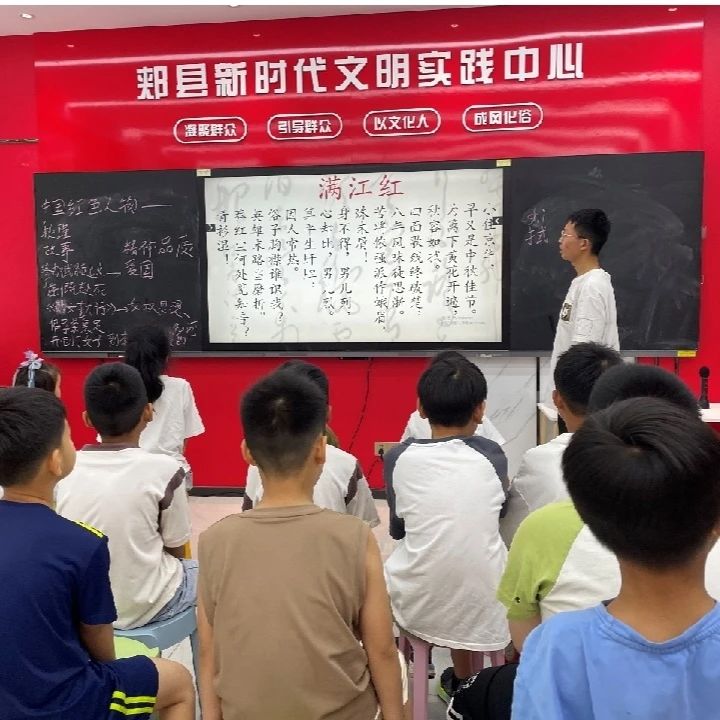 郏县新时代文明实践中心
凝聚群众 引导群众 以文化人 成风化俗
满江红
小住京华，
早又是中秋佳节。
为篱下黄花开遍，
秋容如拭。
四面歌残终破楚，
八年风味徒思浙。
苦将侬强派作蛾眉，
殊未屑！
身不得，男儿列，
心却比，男儿烈。
算平生肝胆，
因人常热。
俗子胸襟谁识我？
英雄末路当磨折。
莽红尘何处觅知音？
青衫湿！
中国红色人物——
秋瑾
故事 精神品质
爱国